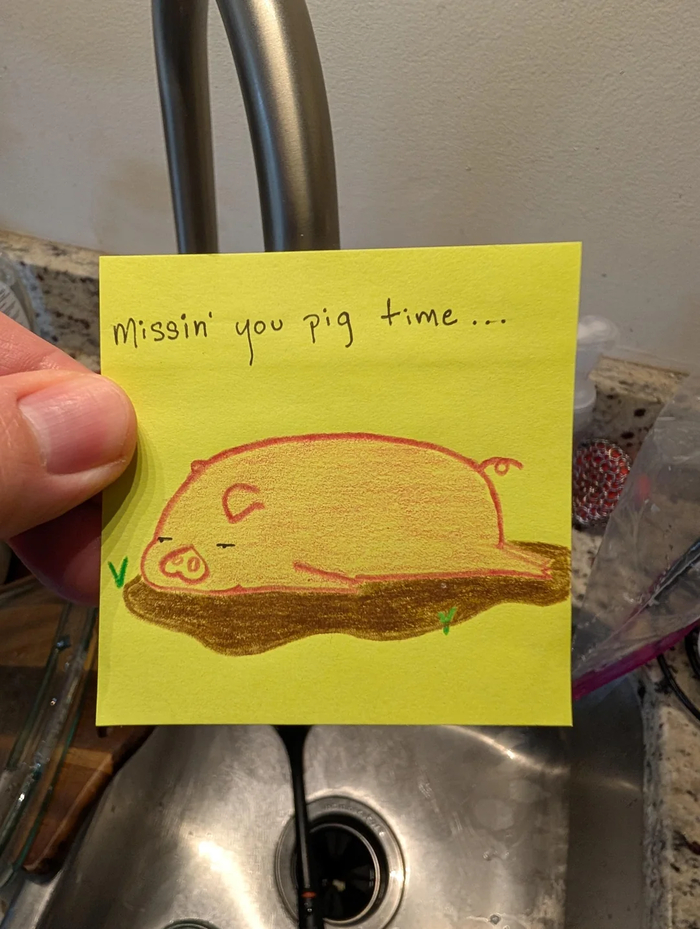 Missin' you pig time...